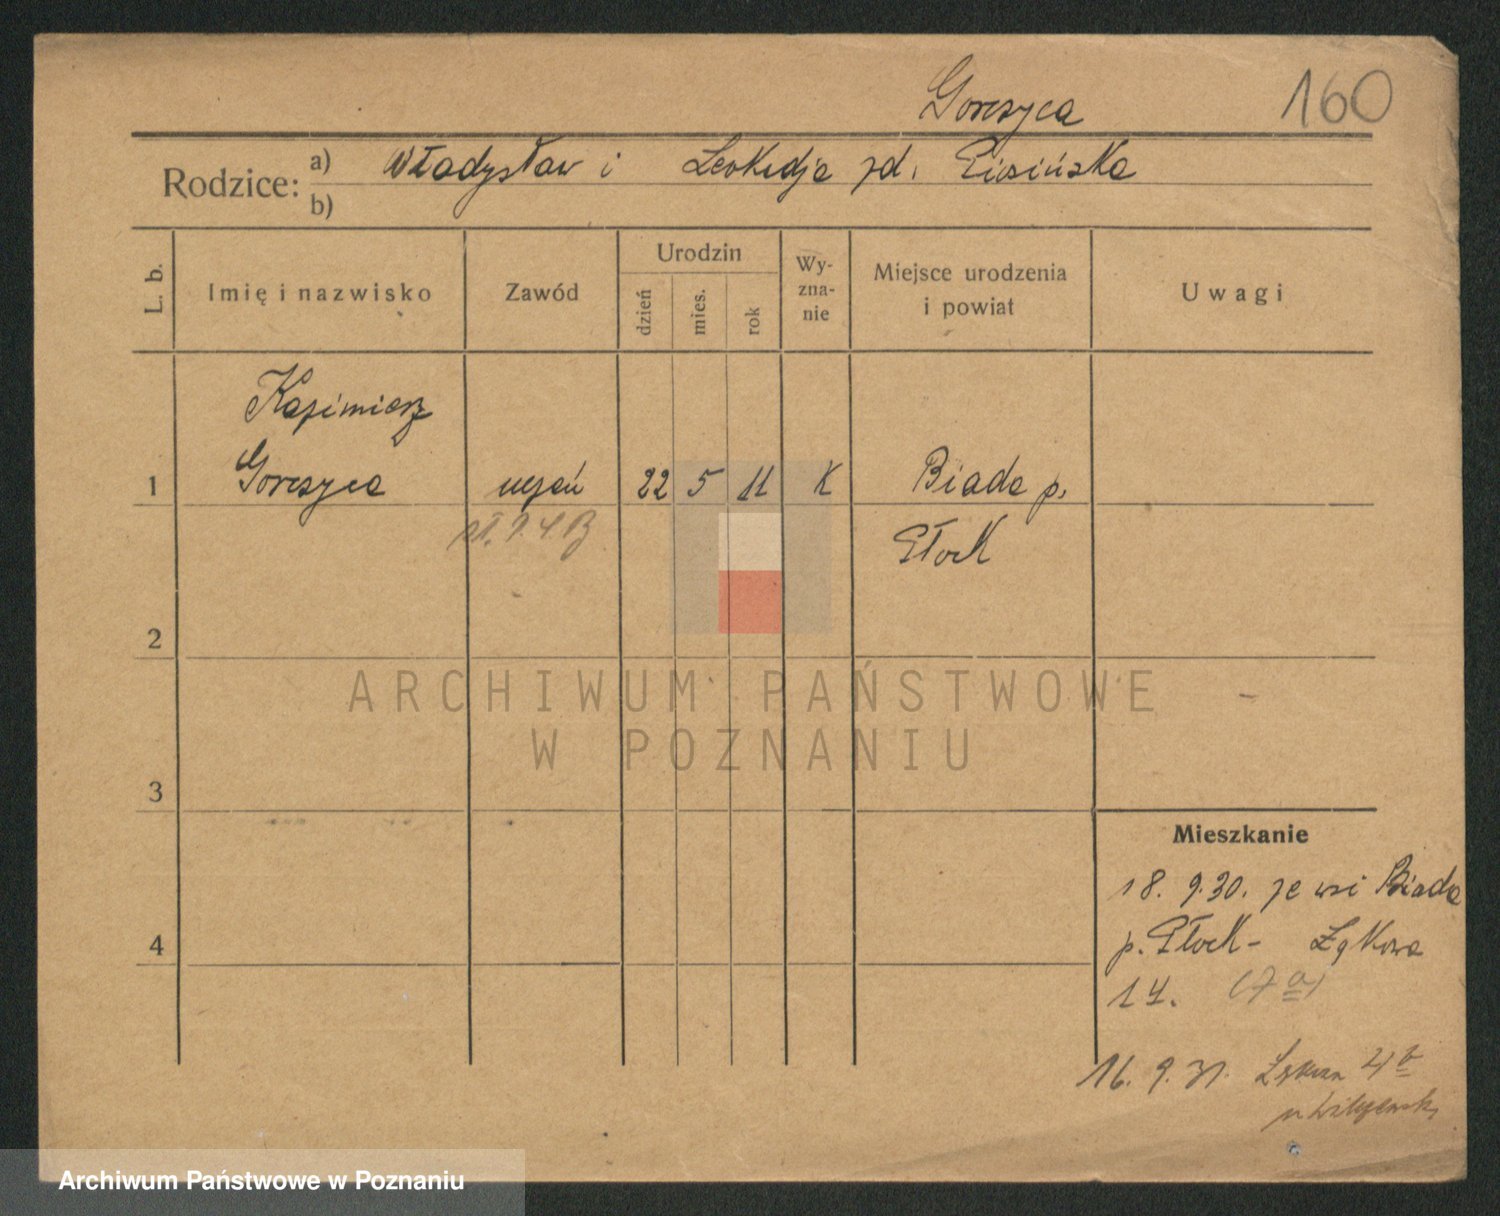 Gorczyca 160
Rodzice: a) Władysław i Leokadja zd.
b)
L. b. Imię i nazwisko Zawód Urodzin dzień mies. rok Wy-zna-nie Miejsce urodzenia i powiat Uwagi
Kazimierz
1 Gorczyca uczeń 22 5 11 K Biada p.
Płock
2
ARCHIWUM PAŃSTWOWE
W POZNANIU
3
Mieszkanie
18. 9.30. ze wsi Biada
4 p. Płock - Łąkowa
14.
16. 9. 31. Łąkowa
Archiwum Państwowe w Poznaniu